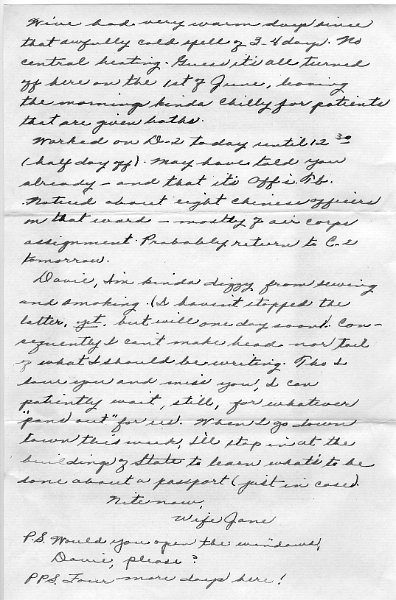 We've had very warm days since
that awfully cold spell of 3-4 days. No
central heating. Guess it's all turned
off here on the 1st of June, leaving
the mornings kinda chilly for patients
that are given baths.
Worked on D-2 today until 12 30
(half day off). May have told you
already - and that it's Off's. Tb.
Noticed about eight Chinese officers
on that ward - mostly of air corps
assignment. Probably return to C-2
tomorrow.
Davie, I'm kinda dizzy from sewing
and smoking. (I haven't stopped the
latter, yet, but will one day soon). Con-
sequently I can't make head nor tail
of what I should be writing. Tho I
love you and miss you, I can
patiently wait, still, for whatever
"pans out" for us. When I go down
town this week, I'll stop in at the
building of State to learn what's to be
done about a passport (just in case).
Nite now,
Wife Jane
P.S. Would you open the windows,
Davie, please?
P.P.S. Four more days here!